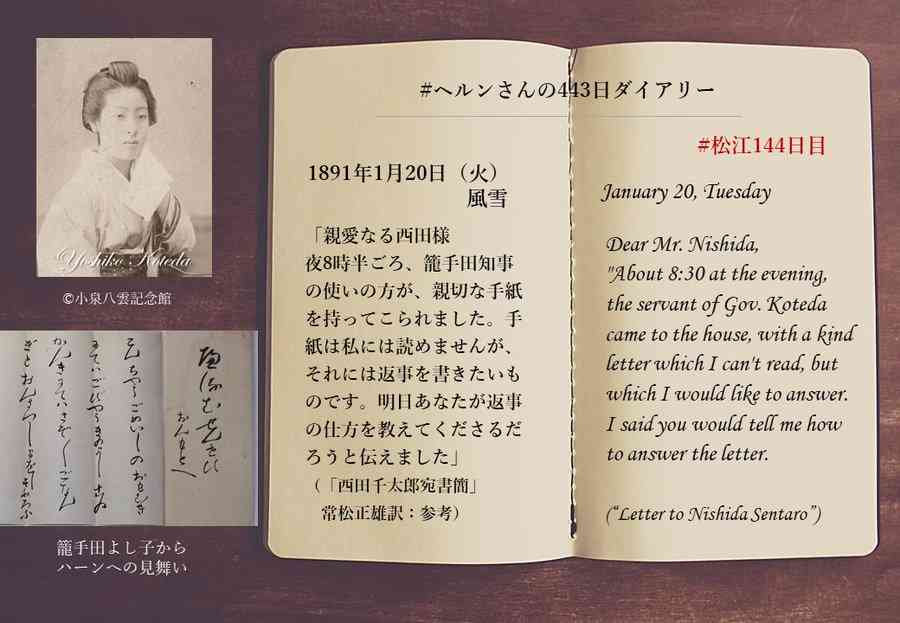 #ヘルンさんの443日ダイアリー
#松江144日目
1891年1月20日（火）
風雪
「親愛なる西田様
夜8時半ごろ、籠手田知事
の使いの方が、親切な手紙
を持ってこられました。手
紙は私には読めませんが、
それには返事を書きたいも
のです。明日あなたが返事
の仕方を教えてくださるだ
ろうと伝えました」
（「西田千太郎宛書簡」
常松正雄訳：参考）
January 20, Tuesday
Dear Mr. Nishida,
"About 8:30 at the evening,
the servant of Gov. Koteda
came to the house, with a kind
letter which I can't read, but
which I would like to answer.
I said you would tell me how
to answer the letter.
("Letter to Nishida Sentaro")
Yoshiko Koteda
©小泉八雲記念館
籠手田よし子から
ハーンへの見舞い